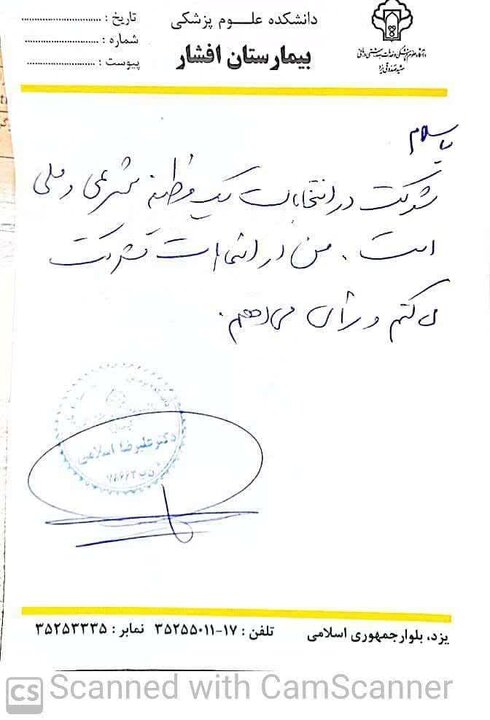 تاریخ : ..........................
شماره : ..........................
پیوست : ..........................
دانشکده علـــوم پزشکی
بیمارستان افشار
با سلام
شرکت در انتخابات یک وظیفه شرعی و ملی
است . من در انتخابات شرکت
می کنم و رأی می دهم .
دکتر علیرضا اسلامی
یزد، بلوار جمهوری اسلامی
تلفن : ۱۷-۳۵۲۵۵۰۱۱ نمابر : ۳۵۲۵۳۳۳۵
CS Scanned with CamScanner